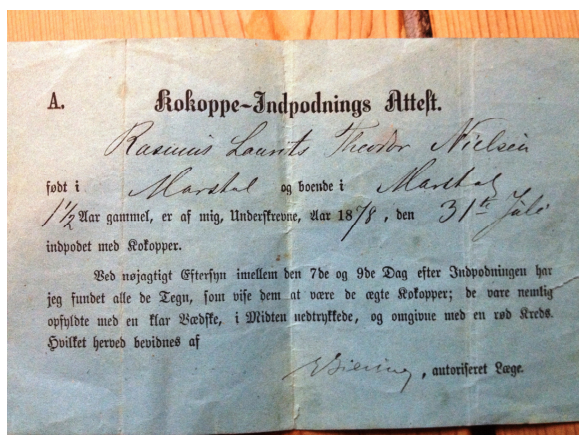 A. Kokoppe-Indpodnings Attest.
Rasmus Laurits Theodor Nielsen
født i Marstal og boende i Marstal
1½ Aar gammel, er af mig, Underskrevne, Aar 1878, den 31te Juli
indpodet med Kokopper.
Ved nøjagtigt Eftersyn imellem den 7de og 9de Dag efter Indpodningen har
jeg fundet alle de Tegn, som vise dem at være de ægte Kokopper; de vare nemlig
opfyldte med en klar Vædske, i Midten nedtrykkede, og omgivne med en rød Kreds.
Hvilket herved bevidnes af
, autoriseret Læge.